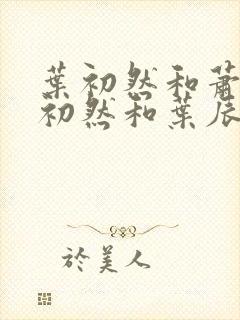 葉初然和蕭
初然和葉辰
於美人